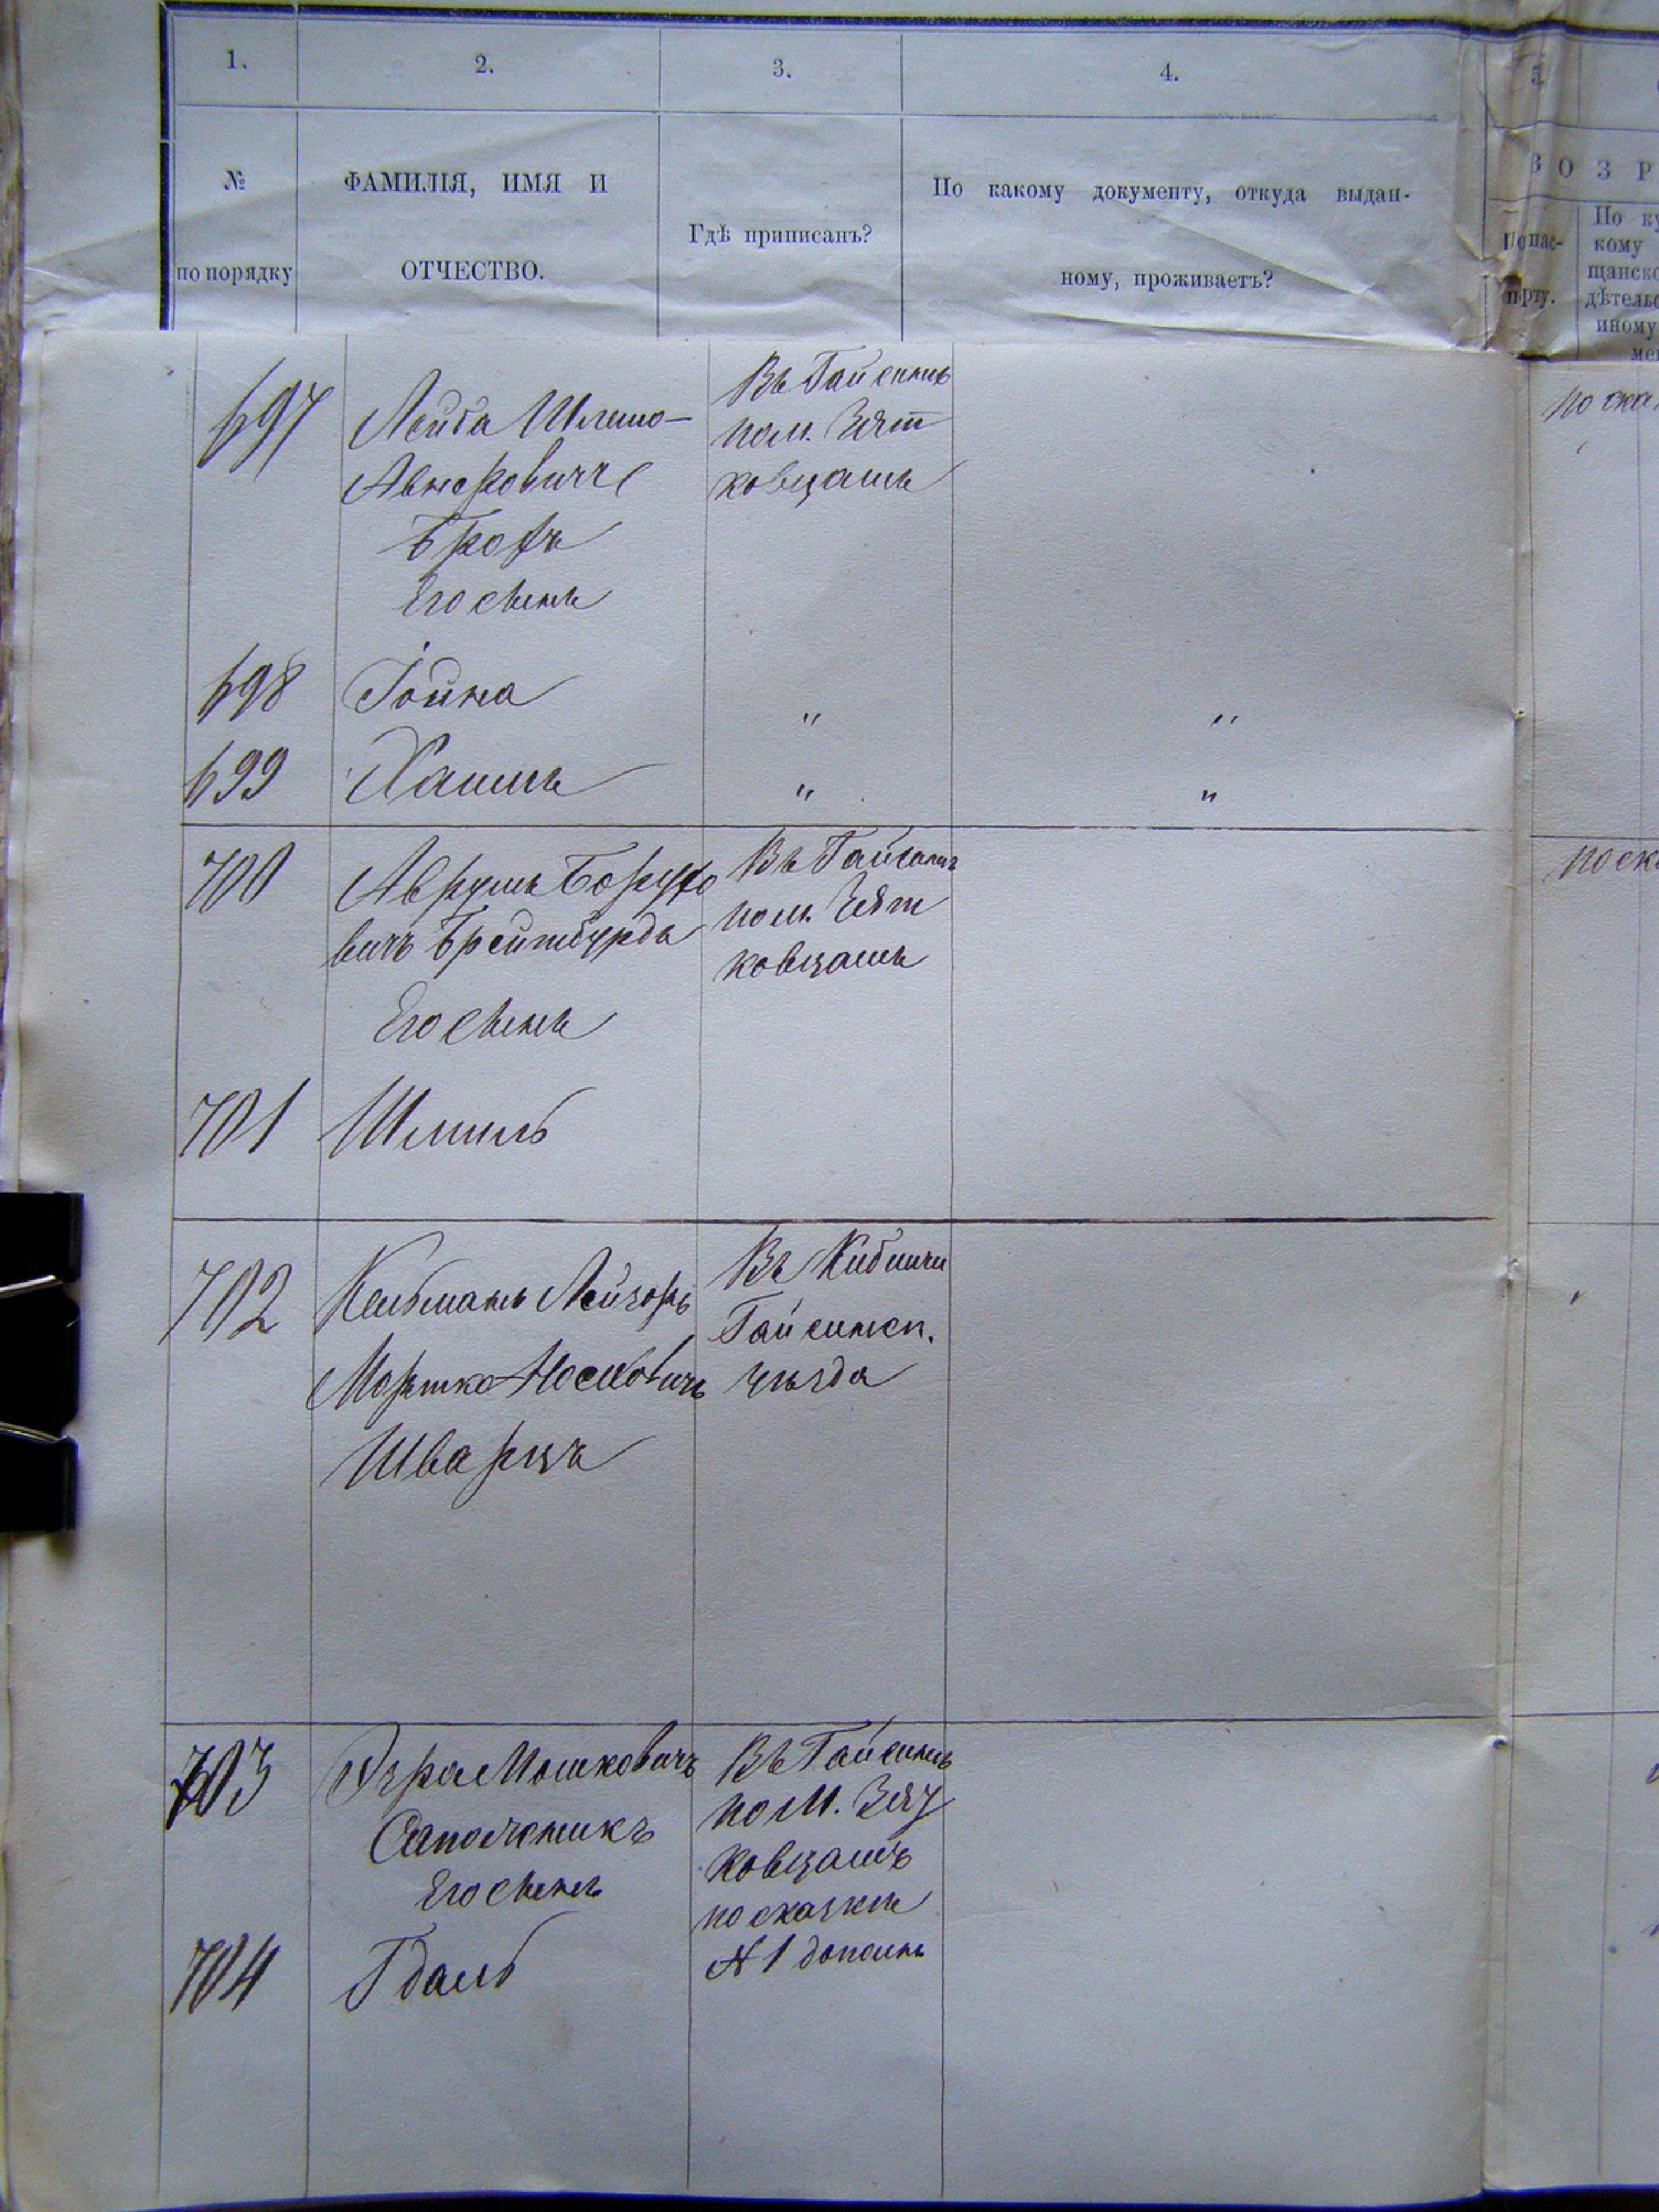 1. 2. 3. 4. 5.
№ по порядку
ФАМИЛІЯ, ИМЯ И
ОТЧЕСТВО.
Гдѣ приписанъ?
По какому документу, откуда выдан-
ному, проживаетъ?
ВОЗР
По пас-
прту.
По ку
кому
щанско
дѣтельс
иному
мен
697
Лейба Шлемо-
Авнеровичъ
Брохъ
Его сынъ
Въ Гайсинѣ
по м. Зят
ковцамъ
по ска
698 Іойна " "
699 Хаимъ " "
700
Аврумъ Борухо
вичъ Брейтбурдъ
Его сынъ
Въ Гайсинѣ
по м. Зят
ковцамъ
по ска
701 Шмиль
702
Кельманъ Лейзоръ
Мортко Носковичъ
Шварцъ
Въ Кибличи
Гайсинск.
уѣзда
703
Мошковичъ
Сапожникъ
Его сынъ
Въ Гайсинѣ
по м. Зят
ковцамъ
по сказкѣ
№ 1
704 Гдаль